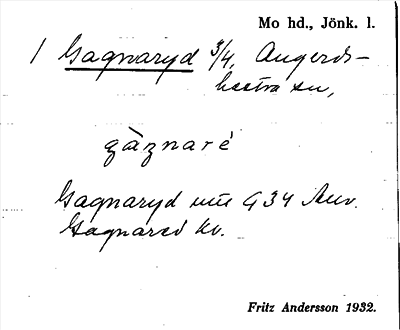 Mo hd., Jönk. l.
1 Gagnaryd 3/4, Angerds-
hestra sn,
gàgnaré
Gagnaryd G 34 Anv.
Gagnared kv.
Fritz Andersson 1932.